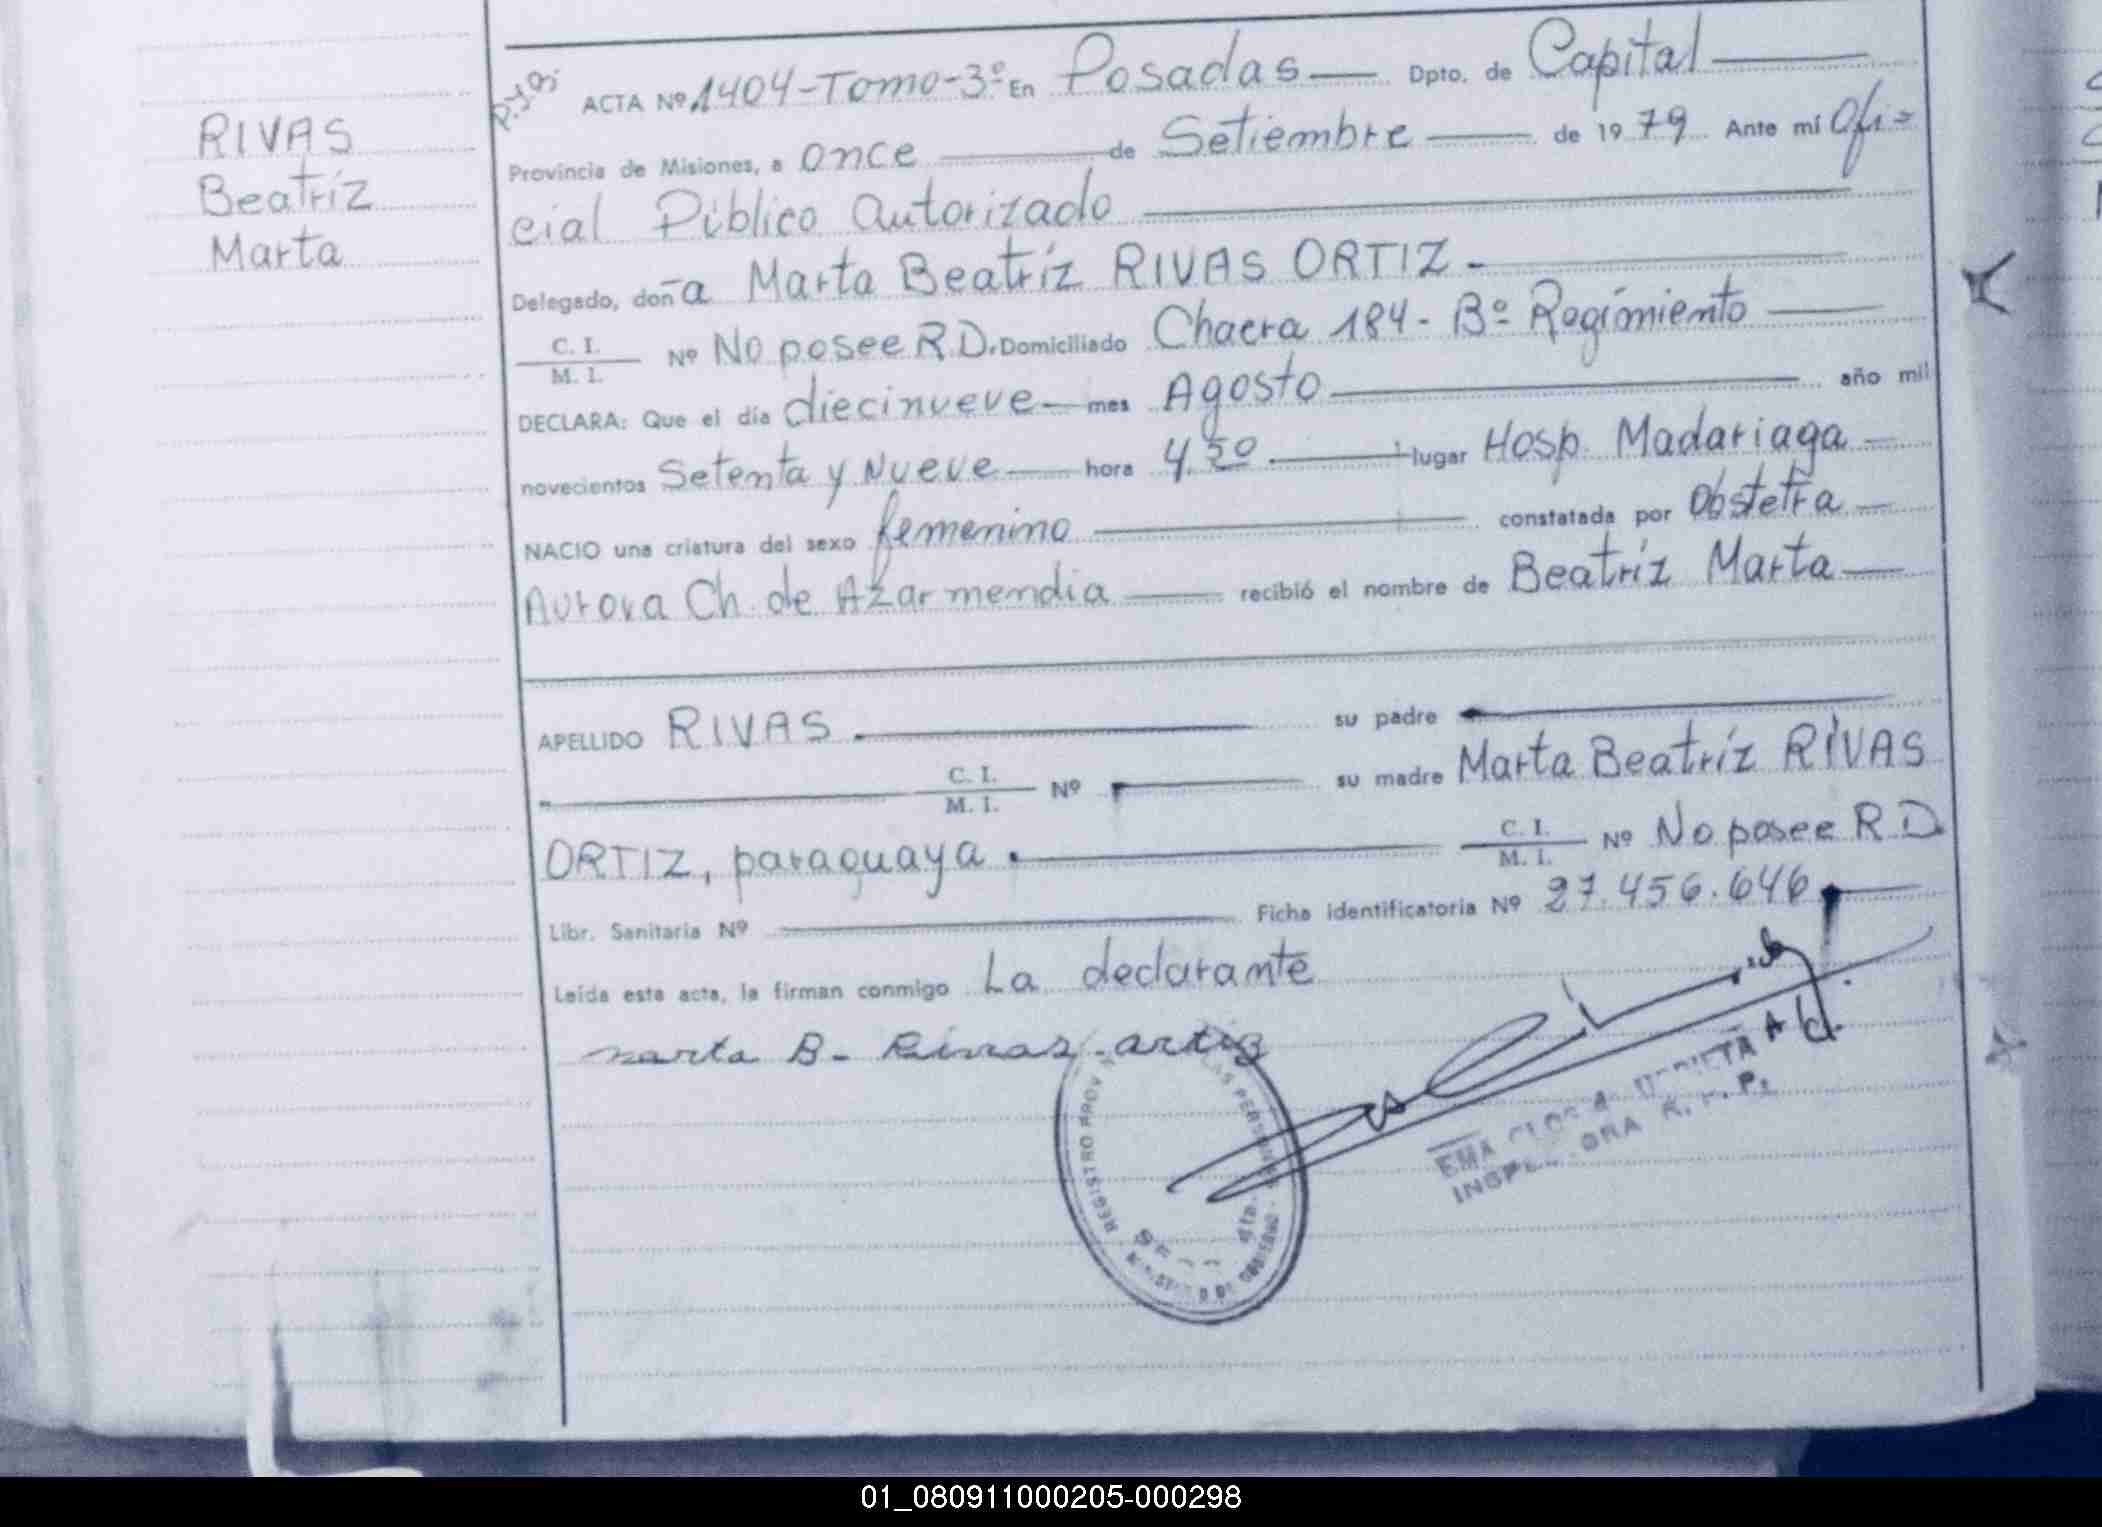 RIVAS
Beatríz
Marta
ACTA Nº 1404-Tomo-3º En Posadas Dpto. de Capital
Provincia de Misiones, a once de Setiembre de 1979 Ante mí Ofi=
cial Público Autorizado
Delegado, doña Marta Beatríz RIVAS ORTIZ-
C. I.
M. I.
Nº No posee R.D. Domiciliado Chacra 184- Bº Regimiento
DECLARA: Que el día diecinueve mes Agosto año mil
novecientos Setenta y Nueve hora 4,50 lugar Hosp. Madariaga
NACIO una criatura del sexo femenino constatada por Obstetra
Aurora Ch. de Azarmendia recibió el nombre de Beatríz Marta
APELLIDO RIVAS su padre
C. I.
M. I.
Nº su madre Marta Beatríz RIVAS
ORTIZ, paraguaya. C. I.
M. I.
Nº No posee R D.
Libr. Sanitaria Nº Ficha identificatoria Nº 27.456.646
Leída esta acta, la firman conmigo La declarante
marta B- Rivas-ortiz
REGISTRO PROV LAS PERSONAS
EMA
R. P.
01_080911000205-000298